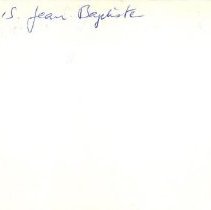 S. Jean Baptiste